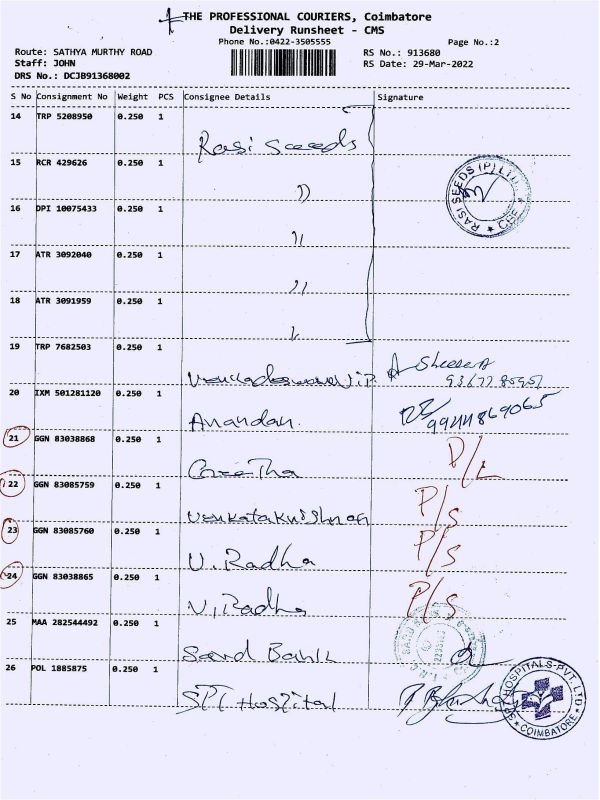 THE PROFESSIONAL COURIERS, Coimbatore
Delivery Runsheet - CMS
Phone No.:0422-3505555 Page No.:2
Route: SATHYA MURTHY ROAD RS No.: 913680
Staff: JOHN RS Date: 29-Mar-2022
DRS No.: DCJB91368002
S No Consignment No Weight PCS Consignee Details Signature
14 TRP 5208950 0.250 1
Rasi Saeeds
15 RCR 429626 0.250 1
RASI SEEDS (P) LTD. CBE
16 DPI 10075433 0.250 1
17 ATR 3092040 0.250 1
18 ATR 3091959 0.250 1
19 TRP 7682503 0.250 1
20 IXM 501281120 0.250 1
Anandan. 9944869065
21 GGN 83038868 0.250 1
D/L
22 GGN 83085759 0.250 1
Venkatakrishnan P/S
23 GGN 83085760 0.250 1
U. Radha P/S
24 GGN 83038865 0.250 1
U. Radha P/S
25 MAA 282544492 0.250 1
Saud Bank
26 POL 1885875 0.250 1
SPT Hospital
HOSPITALS PVT. LTD. COIMBATORE